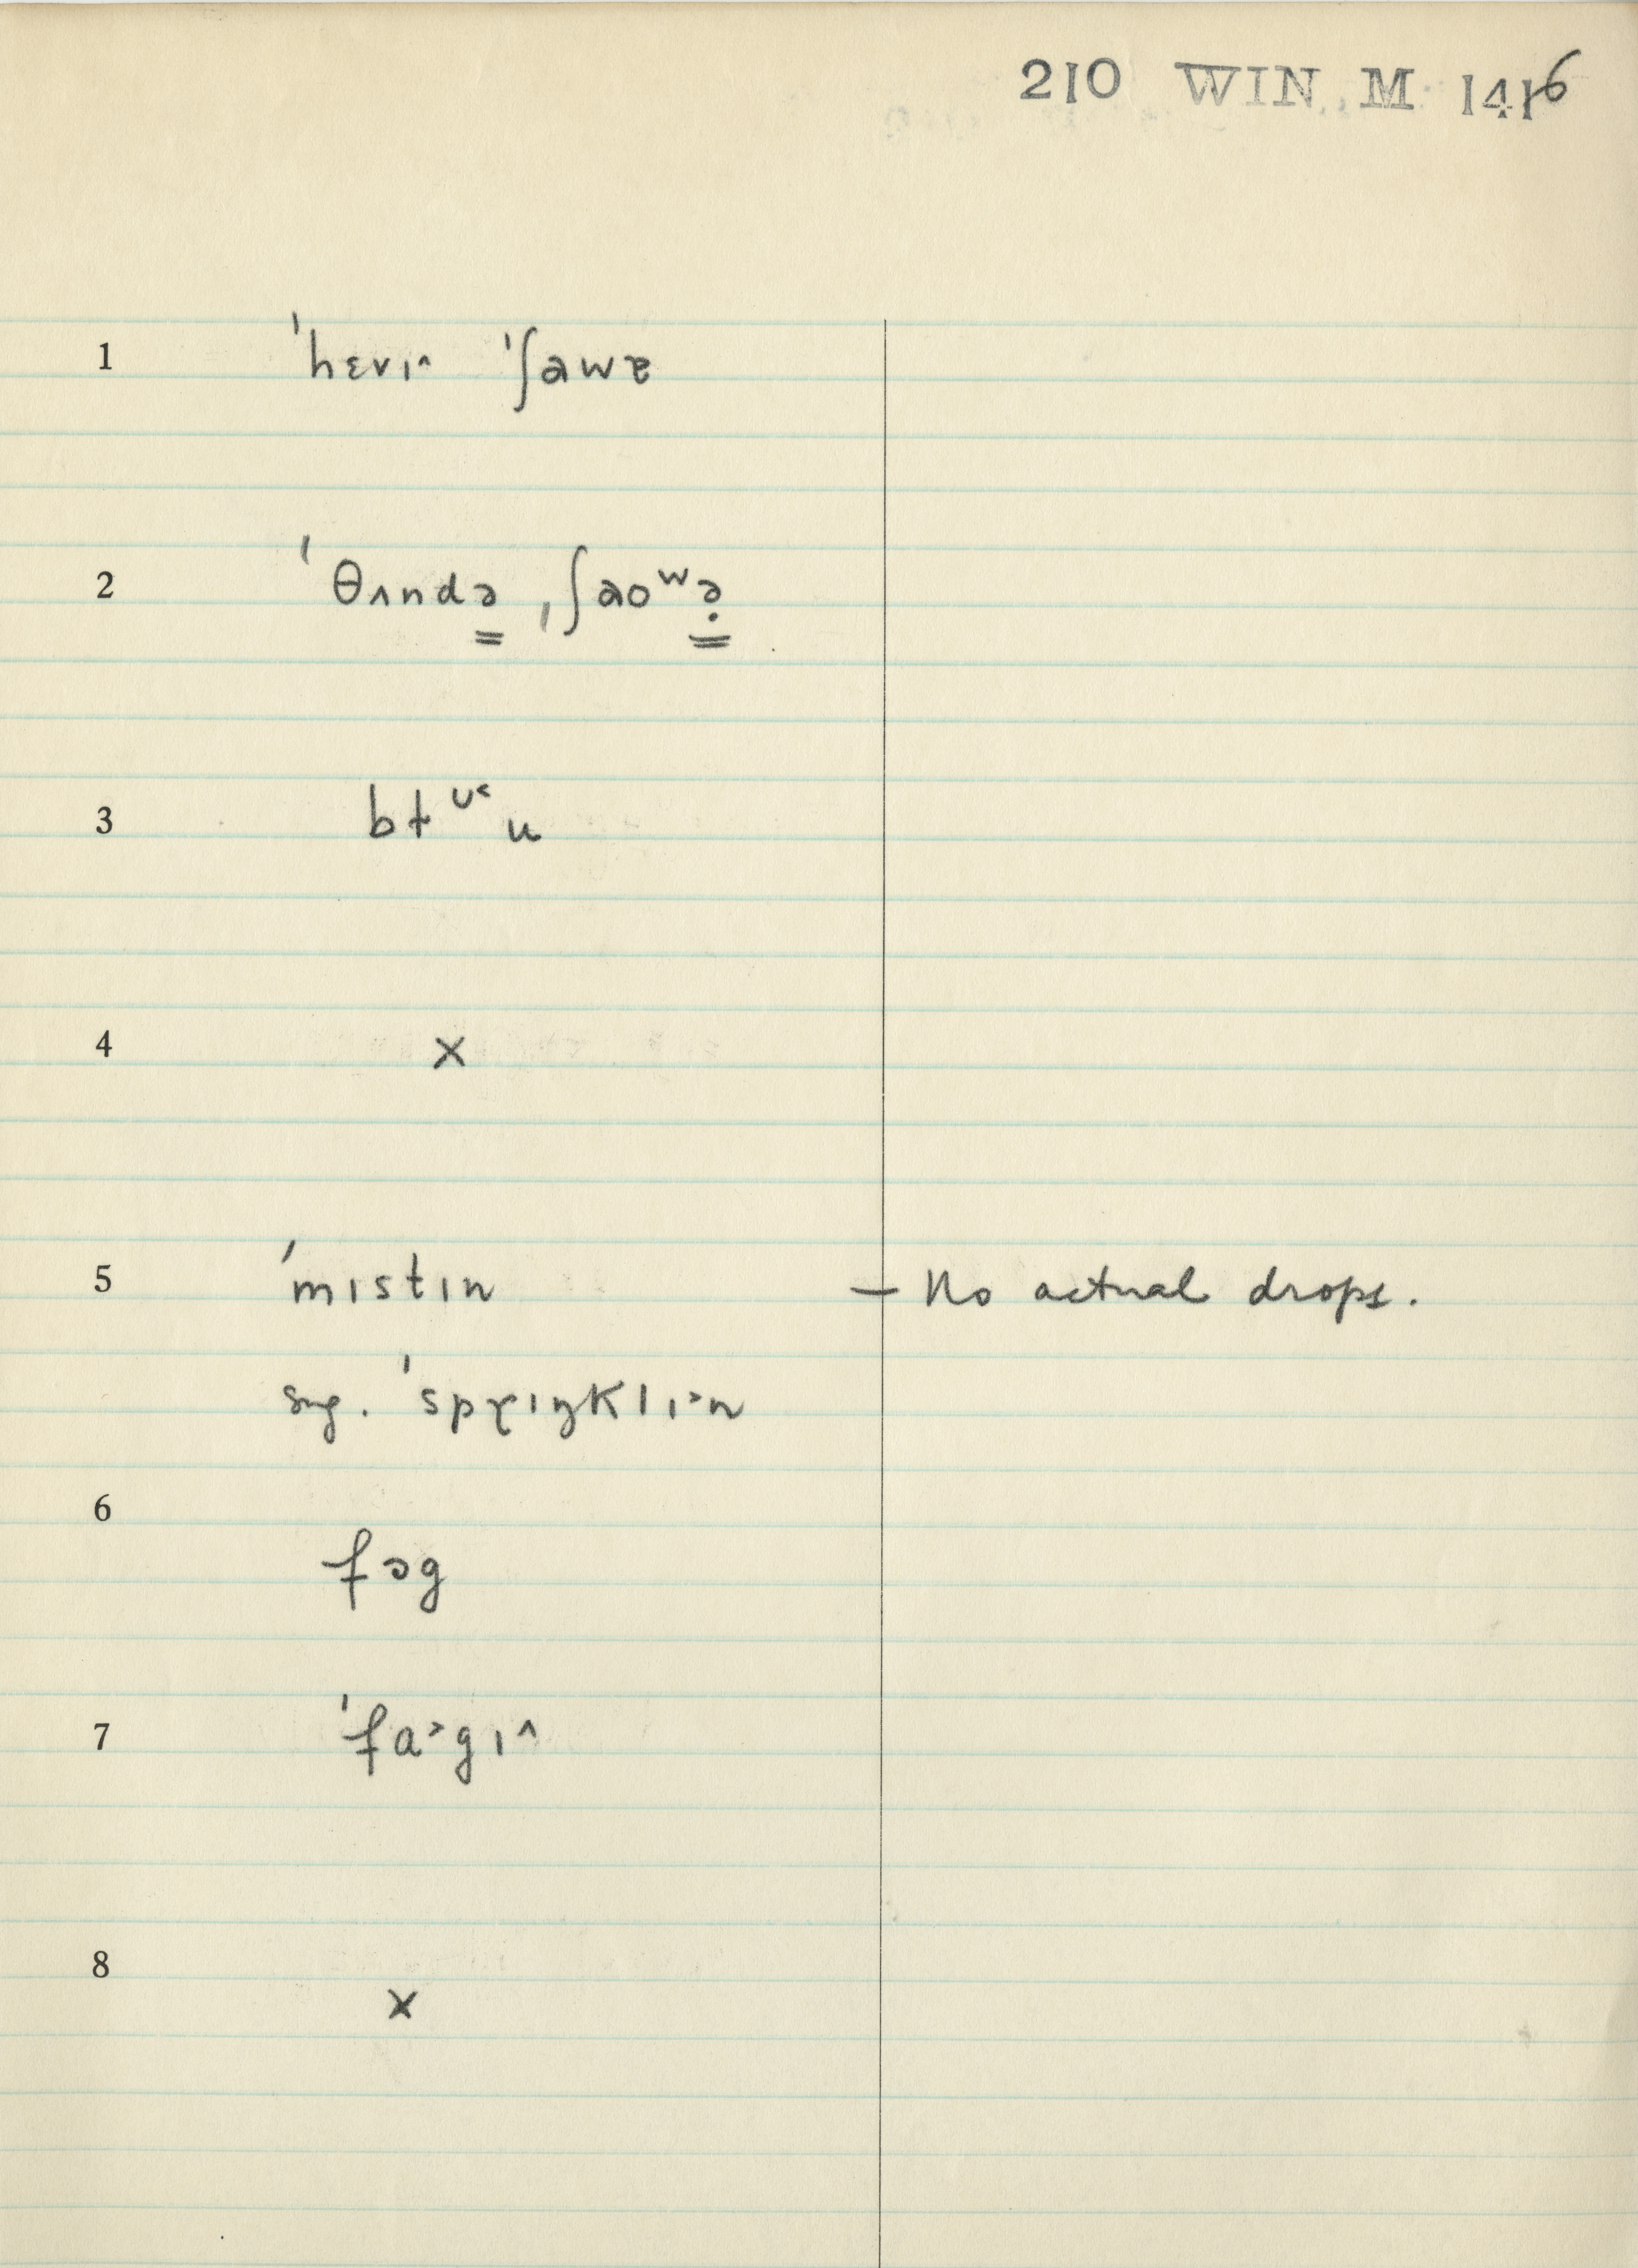 210 WIN. M 1416
1 ˈhɛvɪ^ ˈʃawɐ
2 ˈθʌndə ˌʃaoʷə̣
3 bɫᶷ˂u
4 x
5 ˈmɪstɪn – No actual drops.
sug. ˈsprɪŋklɪ˃n
6
fɔg
7 ˈfɑ˃gɪ^
8
x